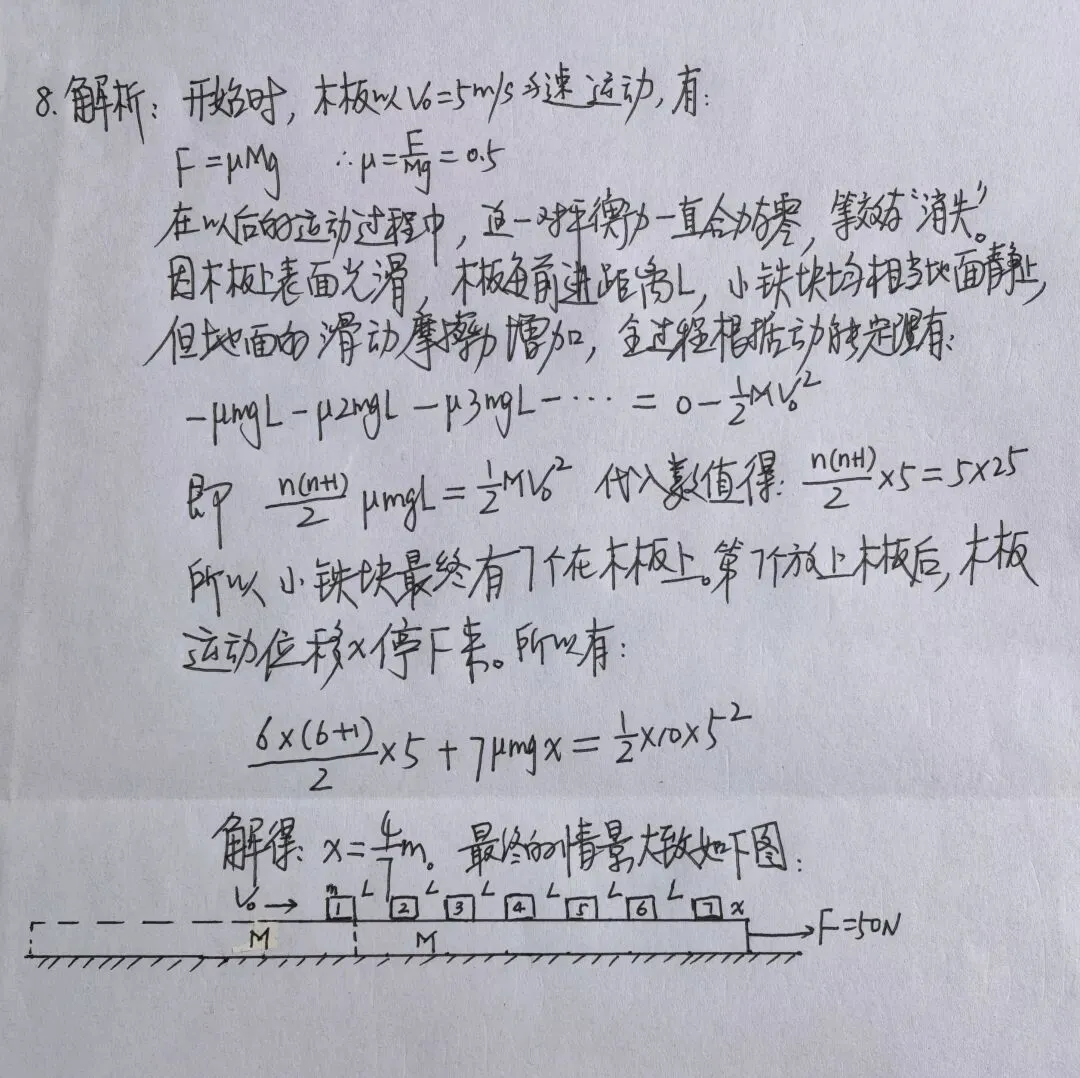 8. 解析：开始时，木板以V₀=5m/s匀速运动，有：
F=μMg ∴μ=F/Mg=0.5
在以后的运动过程中，这一对平衡力一直合力为零，等效为“消失”。
因木板上表面光滑，木板每前进距离L，小铁块均相当地面静止，
但地面的滑动摩擦力增加，全过程根据动能定理有：
-μmgL-μ2mgL-μ3mgL-⋯=0-½MV₀²
即 n(n+1)/2 μmgL=½MV₀² 代入数值得：n(n+1)/2×5=5×25
所以小铁块最终有7个在木板上。第7个放上木板后，木板
运动位移x停下来。所以有：
6×(6+1)/2×5+7μmgx=½×10×5²
解得：x=4/7m。最终的情景大致如下图：
V₀ m 1 L 2 L 3 L 4 L 5 L 6 L 7 x
M M F=50N